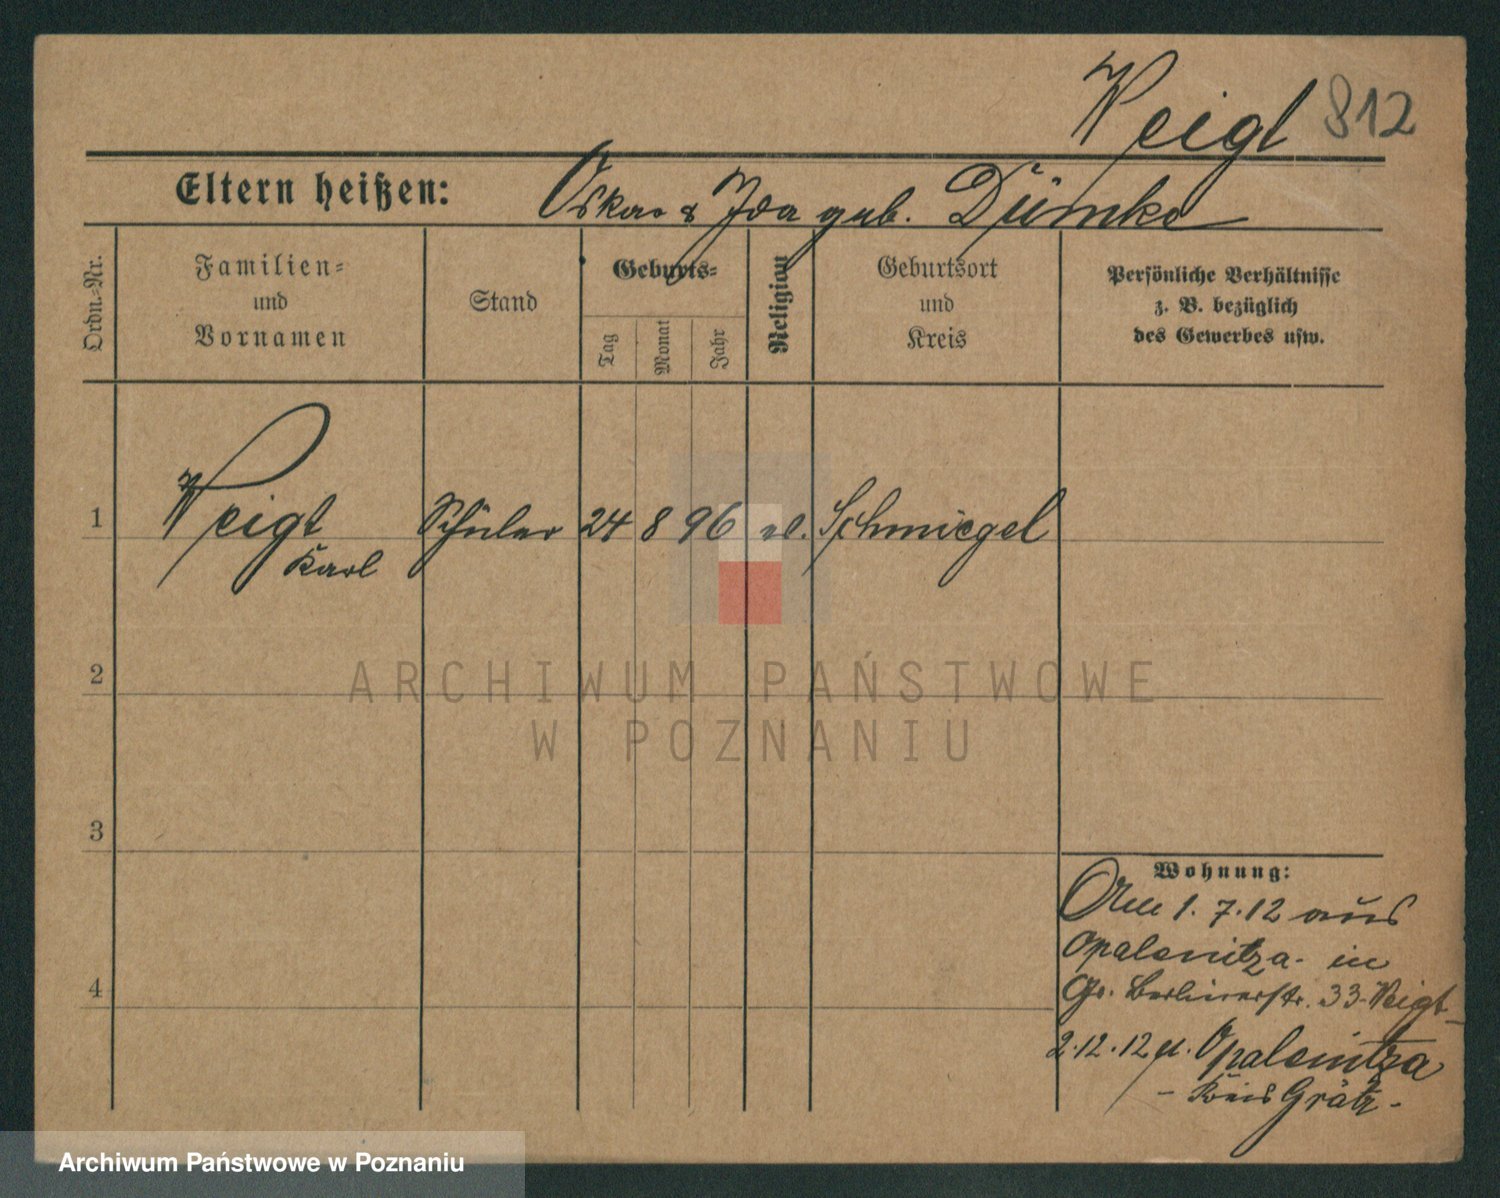 Veigt 812
Eltern heißen: Oskar & Ida geb. Dümke
Ordn.-Nr.
Familien-
und
Vornamen
Stand
Geburts-
Tag
Monat
Jahr
Religion
Geburtsort
und
Kreis
Persönliche Verhältnisse
z. B. bezüglich
des Gewerbes usw.
1 Veigt Schüler 24 8 96 ev. Schmiegel
Karl
2
3
4
Wohnung:
1. 7. 12 aus
Opalenitza in
Gr. Berlinerstr. 33 - Veigt -
2. 12. 12 n. Opalenitza
- Kreis Grätz -
ARCHIWUM PAŃSTWOWE
W POZNANIU
Archiwum Państwowe w Poznaniu